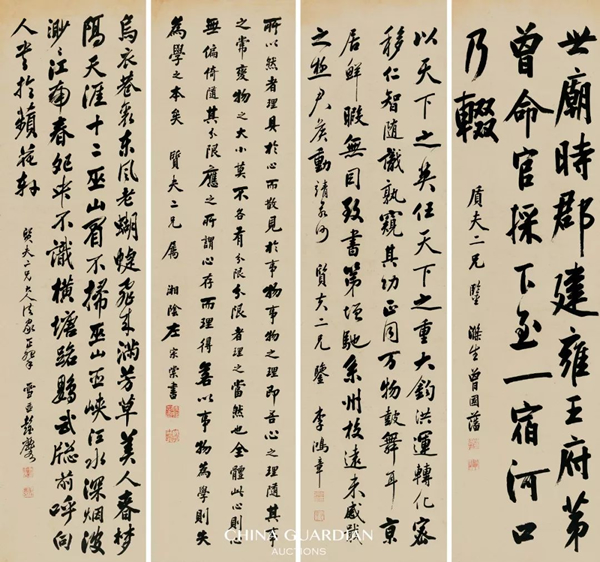 世廟時郡建雍王府第
曾命官採下至一宿河口
乃輟
質夫二兄鑒 滌生曾國藩
以天下之英任天下之重大鈞洪運轉化密
移仁智隨識孰窺其功正同万物鼓舞耳京
居鮮暇無目致書第增馳系州校遠未感戢
之極 動靖 賢夫二兄鑒 李鴻章
所以然者理具於心而散見於事物事物之理即吾心之理隨其事
之常變物之大小莫不各有分限分限者理之當然也全體此心則心
無偏倚隨其分限應之所謂心存而理得善以事物為學則失
為學之本矣 賢夫二兄屬 湘陰左宗棠書
烏衣巷裏東風老蝴蜨飛來滿芳草美人春夢
隔天涯十二巫山眉不掃巫山巫峽江水深烟波
渺渺江南春 不識橫塘路鸚武牕前呼向
人 於蘋花軒
賢夫二兄大人法家正 雪琴彭玉麐
CHINA GUARDIAN
AUCTIONS